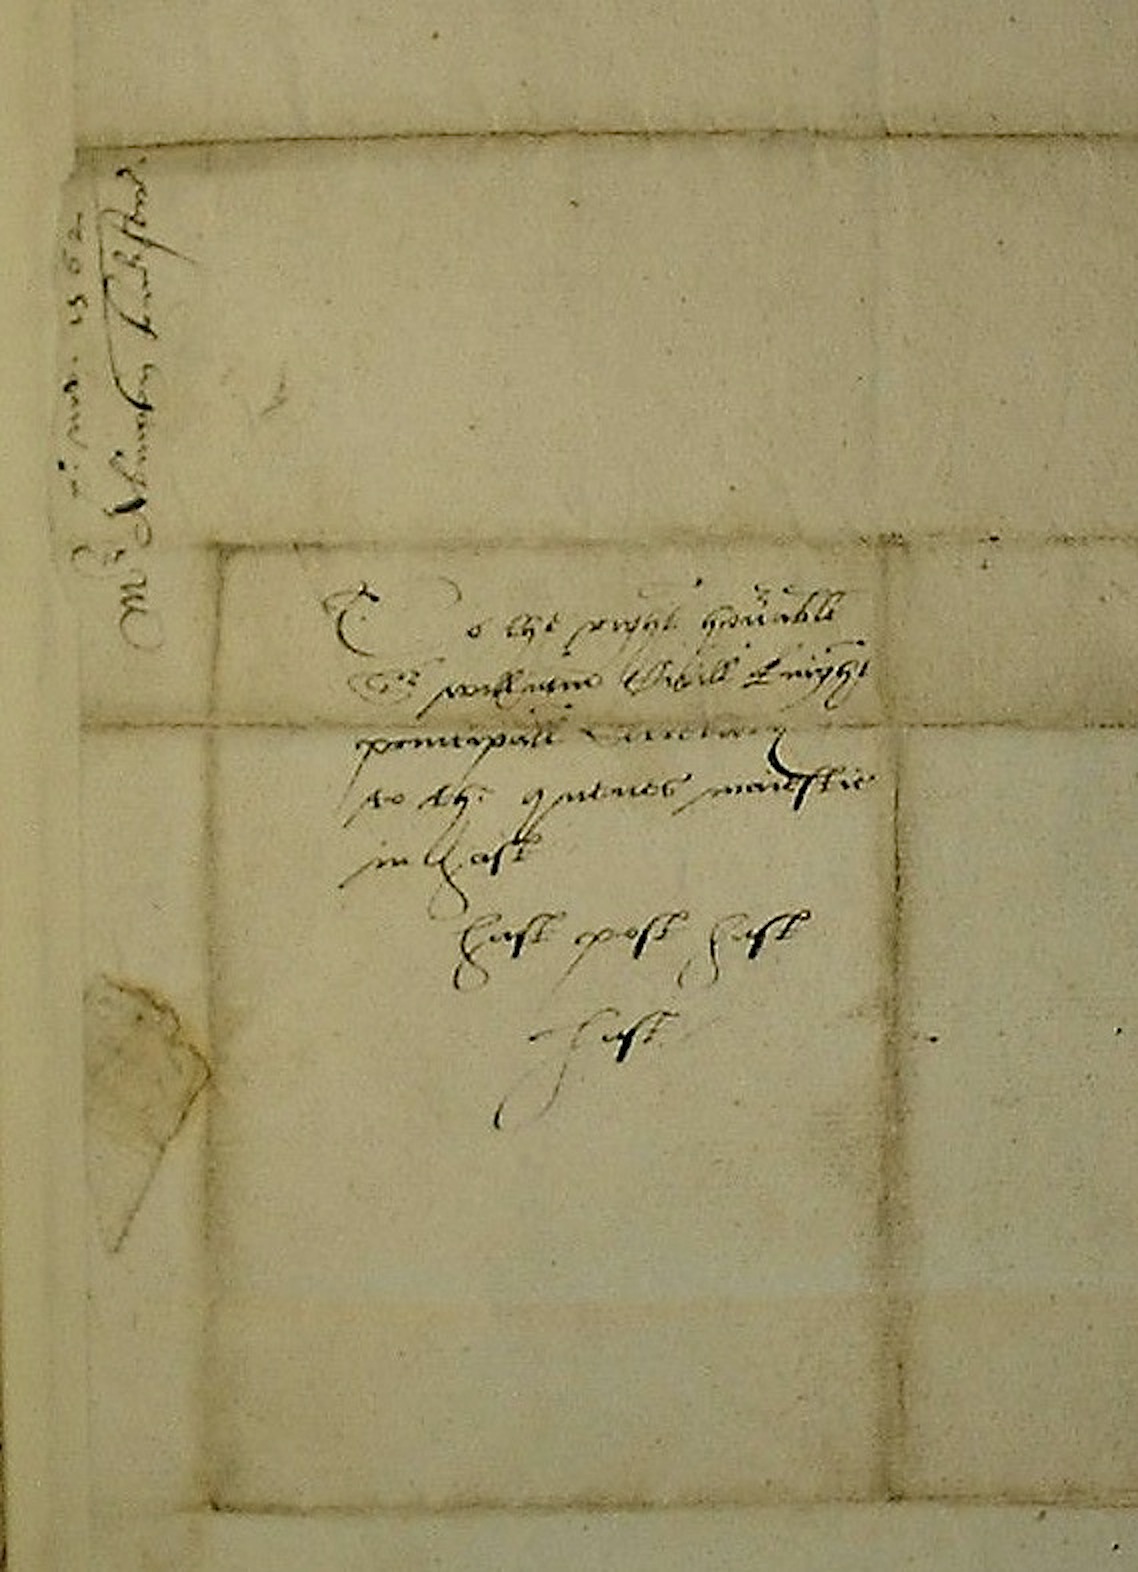 To the right honᵒrable
Sʳ william Cecill knight
principall Secretary
to the quenes maiestie
in hast
hast post hast
hast
1562
Mʳ